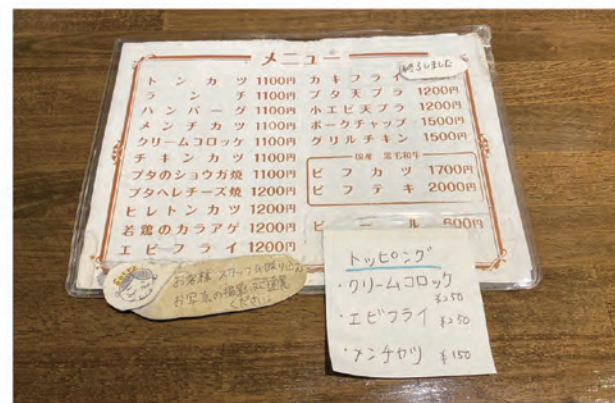 メニュー
トンカツ 1100円
ランチ 1100円
ハンバーグ 1100円
メンチカツ 1100円
クリームコロッケ 1100円
チキンカツ 1100円
ブタのショウガ焼 1100円
ブタヘレチーズ焼 1200円
ヒレトンカツ 1200円
若鶏のカラアゲ 1200円
エビフライ 1200円
カキフライ
終了しました
ブタ天プラ 1200円
小エビ天プラ 1200円
ポークチャップ 1500円
グリルチキン 1500円
国産 黒毛和牛
ビフカツ 1700円
ビフテキ 2000円
ビール 600円
お客様 スタッフの映り込む
お写真の撮影はご遠慮
ください
トッピング
・クリームコロッケ
¥250
・エビフライ ¥250
・メンチカツ ¥150